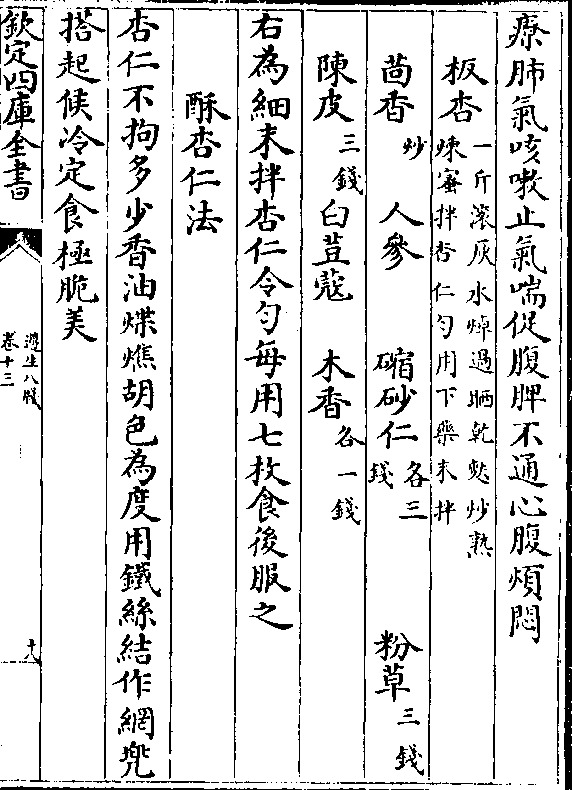 療肺氣咳嗽止氣喘促腹脾不通心腹煩悶
板杏 一斤滚灰水焯過晒乾麩炒熟
煉蜜拌杏仁匀用下藥末拌
茴香 炒 人參 縮砂仁 各三錢 粉草 三錢
陳皮 三錢 白荳蔻 木香 各一錢
右為細末拌杏仁令匀每用七枚食後服之
酥杏仁法
杏仁不拘多少香油煠燋胡色為度用鐵絲結作網兜
搭起候冷定食極脆美
欽定四庫全書
遵生八牋
卷十三
十八